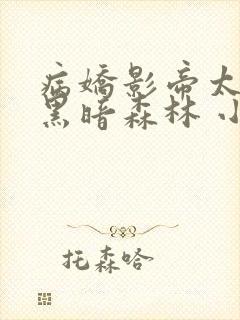 病嬌影帝太
黑暗森林 小
托森哈